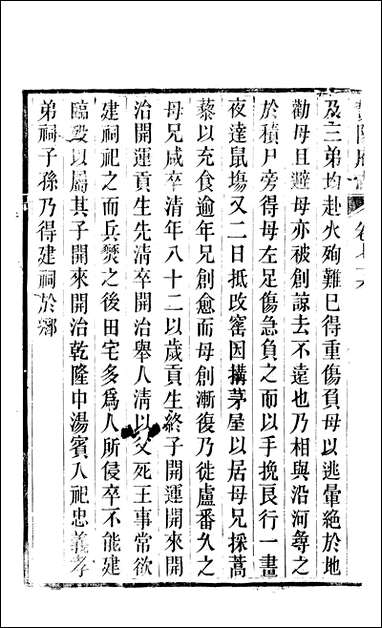 及三弟均赴火殉難巳得重傷負母以逃暈絕於地
勸母且避母亦被創諒去不遠也乃相與沿河尋之
於積尸旁得母左足傷急負之而以手挽艮行一晝
夜達鼠塲又二日抵改窰因搆茅屋以居母兄採蒿
藜以充食逾年兄創愈而母創漸復乃徙盧番久之
母兄咸卒清年八十二以歲貢生終子開運開來開
治開運貢生先清卒開治舉人清以父死王事常欲
建祠祀之而兵燹之後田宅多爲人所侵卒不能建
臨歿以屬其子開來開治乾隆中湯賓入祀忠義孝
弟祠子孫乃得建祠於鄉